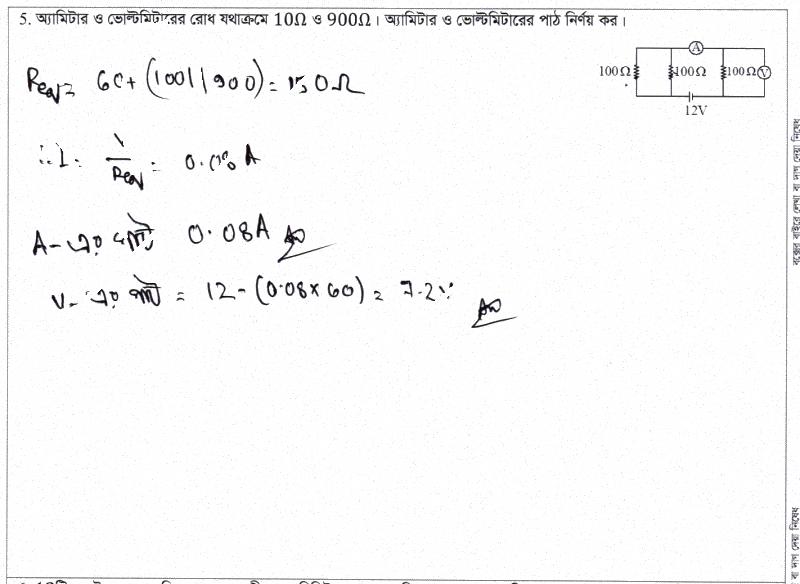 5. অ্যামিটার ও ভোল্টমিটারের রোধ যথাক্রমে 10Ω ও 900Ω। অ্যামিটার ও ভোল্টমিটারের পাঠ নির্ণয় কর।
A
100Ω 100Ω 100Ω V
12V
Req = 60+(100||900) = 150Ω
∴ I = V/Req = 0.08 A
A-এর পাঠ 0.08A Ans
V-এর পাঠ = 12-(0.08×60) = 7.2V
Ans
বক্সের বাইরে লেখা বা দাগ দেয়া নিষেধ
বা দাগ দেয়া নিষেধ